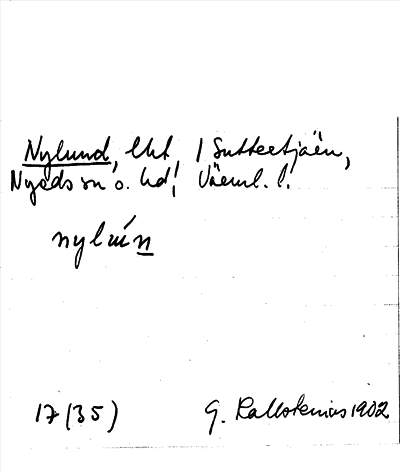 Nylund, lht, i Suttertjärn,
Nyeds sn o. hd, Värml. l.
nylún
17 (35) G. Kallstenius 1902